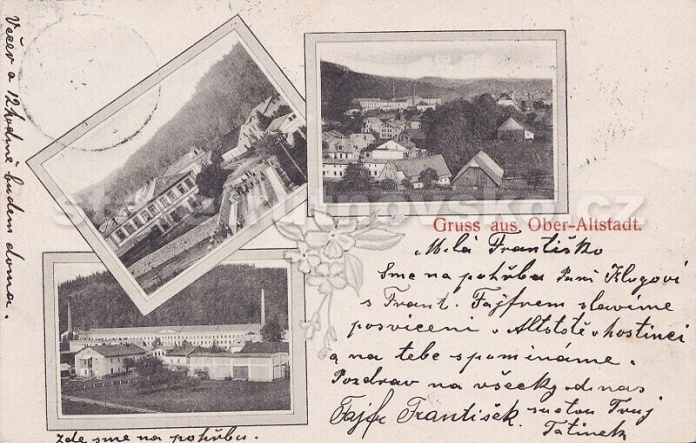 Večer o 12 hodině budem doma.
Gruss aus Ober-Altstadt.
Milá Františko
Sme na pohřbu Paní Klugoví
s Frant. Fajfrem slavíme
posvícení v Altstötě v hostinci
a na tebe spomínáme.
Pozdrav na všecky od nas
Fajfr František. Tvuj
Tátinek
Zde sme na pohřbu.